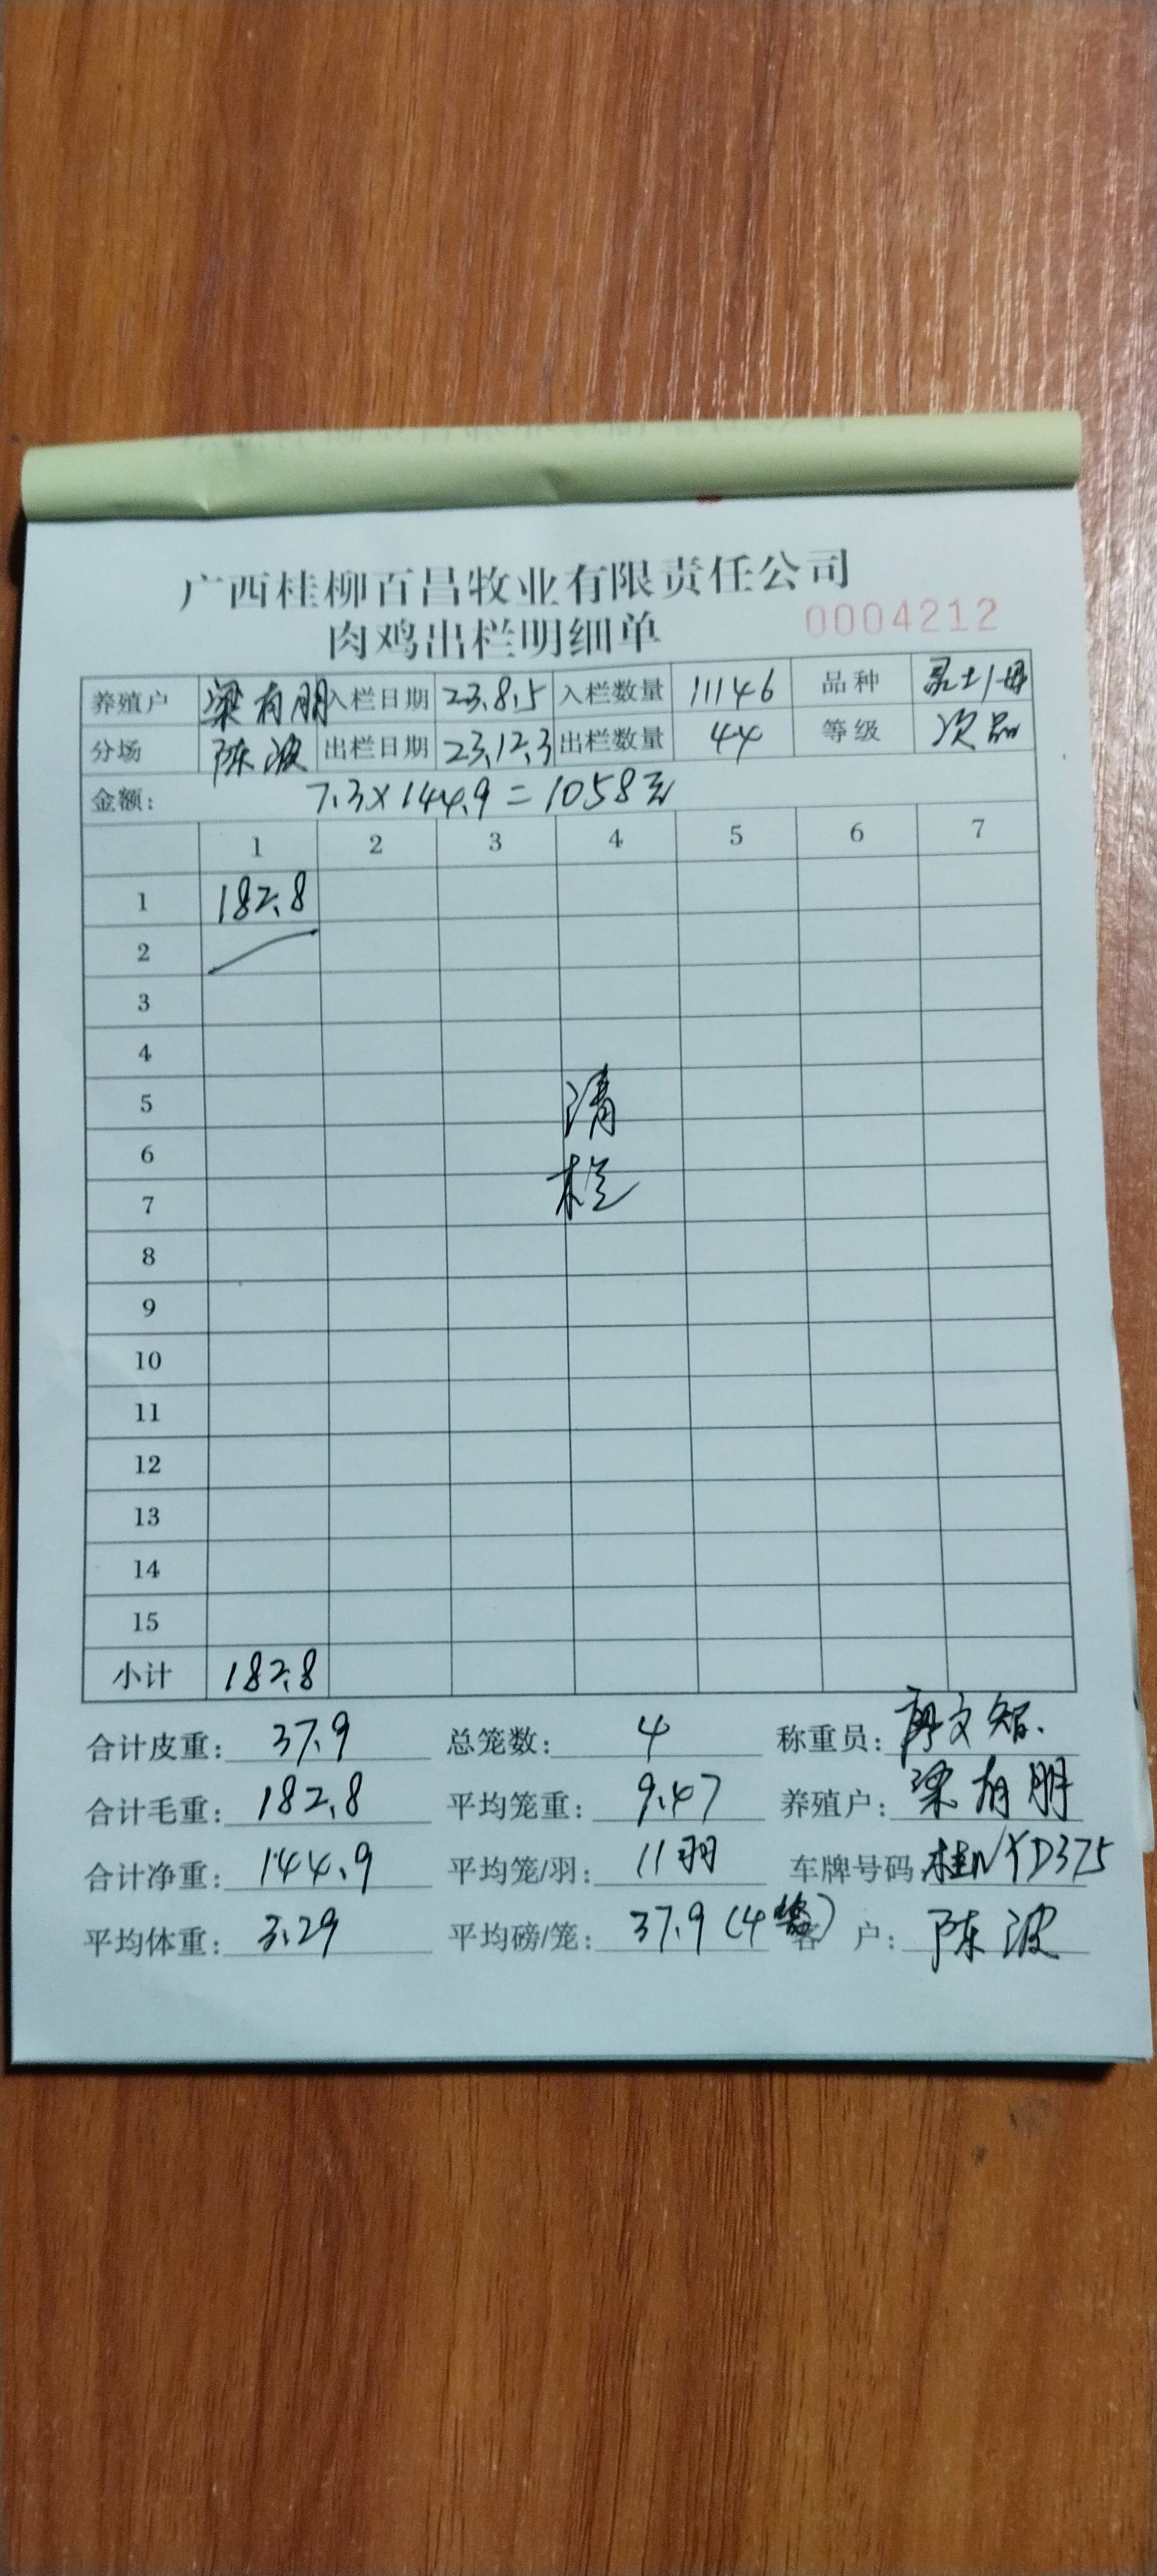 广西桂柳百昌牧业有限责任公司
肉鸡出栏明细单 0004212
养殖户 梁有朋 入栏日期 23.8.5 入栏数量 11146 品种
分场 陈波 出栏日期 23.12.3 出栏数量 44 等级 次品
金额: 7.3×144.9=1058元
1 2 3 4 5 6 7
1 182.8
2
3
4
5 清
6
7 栏
8
9
10
11
12
13
14
15
小计 182.8
合计皮重: 37.9 总笼数: 4 称重员: 文智.
合计毛重: 182.8 平均笼重: 9.47 养殖户: 梁有朋
合计净重: 144.9 平均笼/羽: 11羽 车牌号码: 桂NYD375
平均体重: 3.29 平均磅/笼: 37.9(4) 客户: 陈波